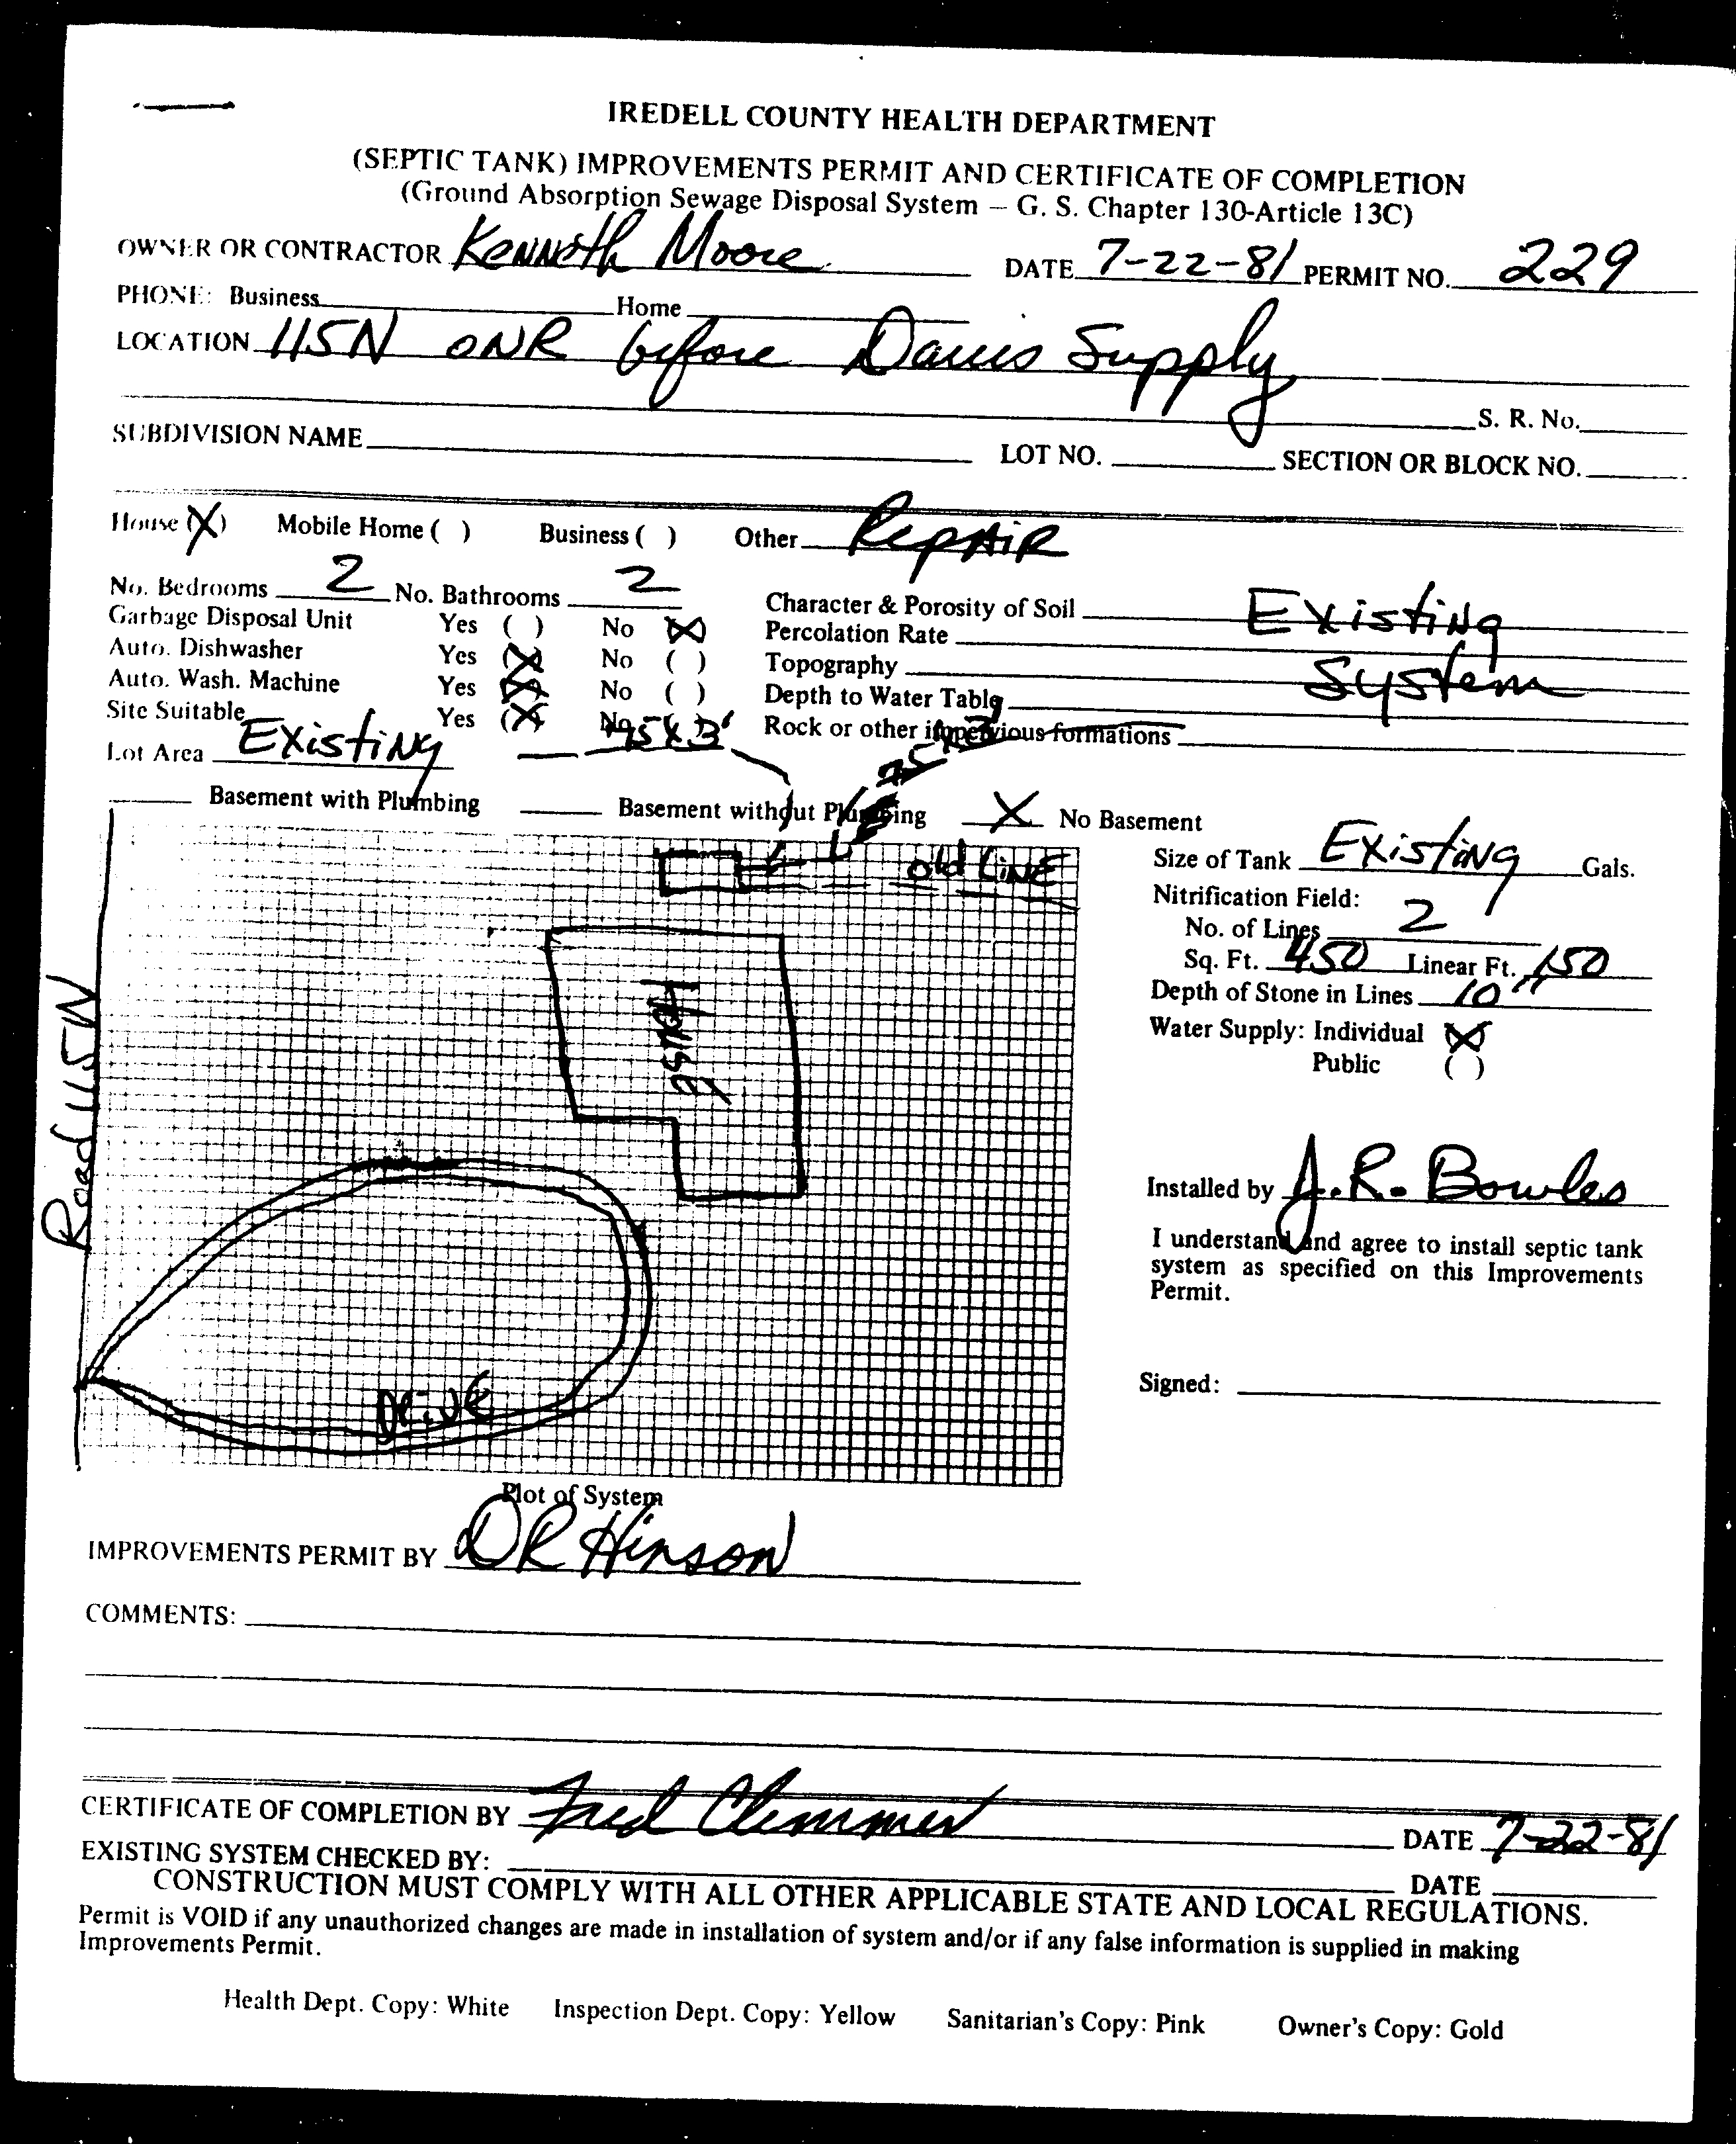 IREDELL COUNTY HEALTH DEPARTMENT
(SEPTIC TANK) IMPROVEMENTS PERMIT AND CERTIFICATE OF COMPLETION
(Ground Absorption Sewage Disposal System – G. S. Chapter 130-Article 13C)
OWNER OR CONTRACTOR Kenneth Moore DATE 7-22-81 PERMIT NO. 229
PHONE: Business Home
LOCATION 115N ON R before Davis Supply
S. R. No.
SUBDIVISION NAME LOT NO. SECTION OR BLOCK NO.
House (X) Mobile Home ( ) Business ( ) Other Repair
No. Bedrooms 2 No. Bathrooms 2
Garbage Disposal Unit Yes ( ) No (X)
Auto. Dishwasher Yes (X) No ( )
Auto. Wash. Machine Yes (X) No ( )
Site Suitable Yes (X) No ( )
Lot Area Existing
Character & Porosity of Soil Existing
Percolation Rate
Topography System
Depth to Water Table
Rock or other impervious formations
75 X 3'
75 X 3'
Basement with Plumbing Basement without Plumbing X No Basement
old LINE
House
Road 115N
Drive
Plot of System
Size of Tank Existing Gals.
Nitrification Field:
No. of Lines 2
Sq. Ft. 450 Linear Ft. 150
Depth of Stone in Lines 10"
Water Supply: Individual (X)
Public ( )
Installed by J.R. Bowles
I understand and agree to install septic tank
system as specified on this Improvements
Permit.
Signed:
IMPROVEMENTS PERMIT BY DR Hinson
COMMENTS:
CERTIFICATE OF COMPLETION BY Fred Clemmer DATE 7-22-81
EXISTING SYSTEM CHECKED BY: DATE
CONSTRUCTION MUST COMPLY WITH ALL OTHER APPLICABLE STATE AND LOCAL REGULATIONS.
Permit is VOID if any unauthorized changes are made in installation of system and/or if any false information is supplied in making
Improvements Permit.
Health Dept. Copy: White Inspection Dept. Copy: Yellow Sanitarian's Copy: Pink Owner's Copy: Gold